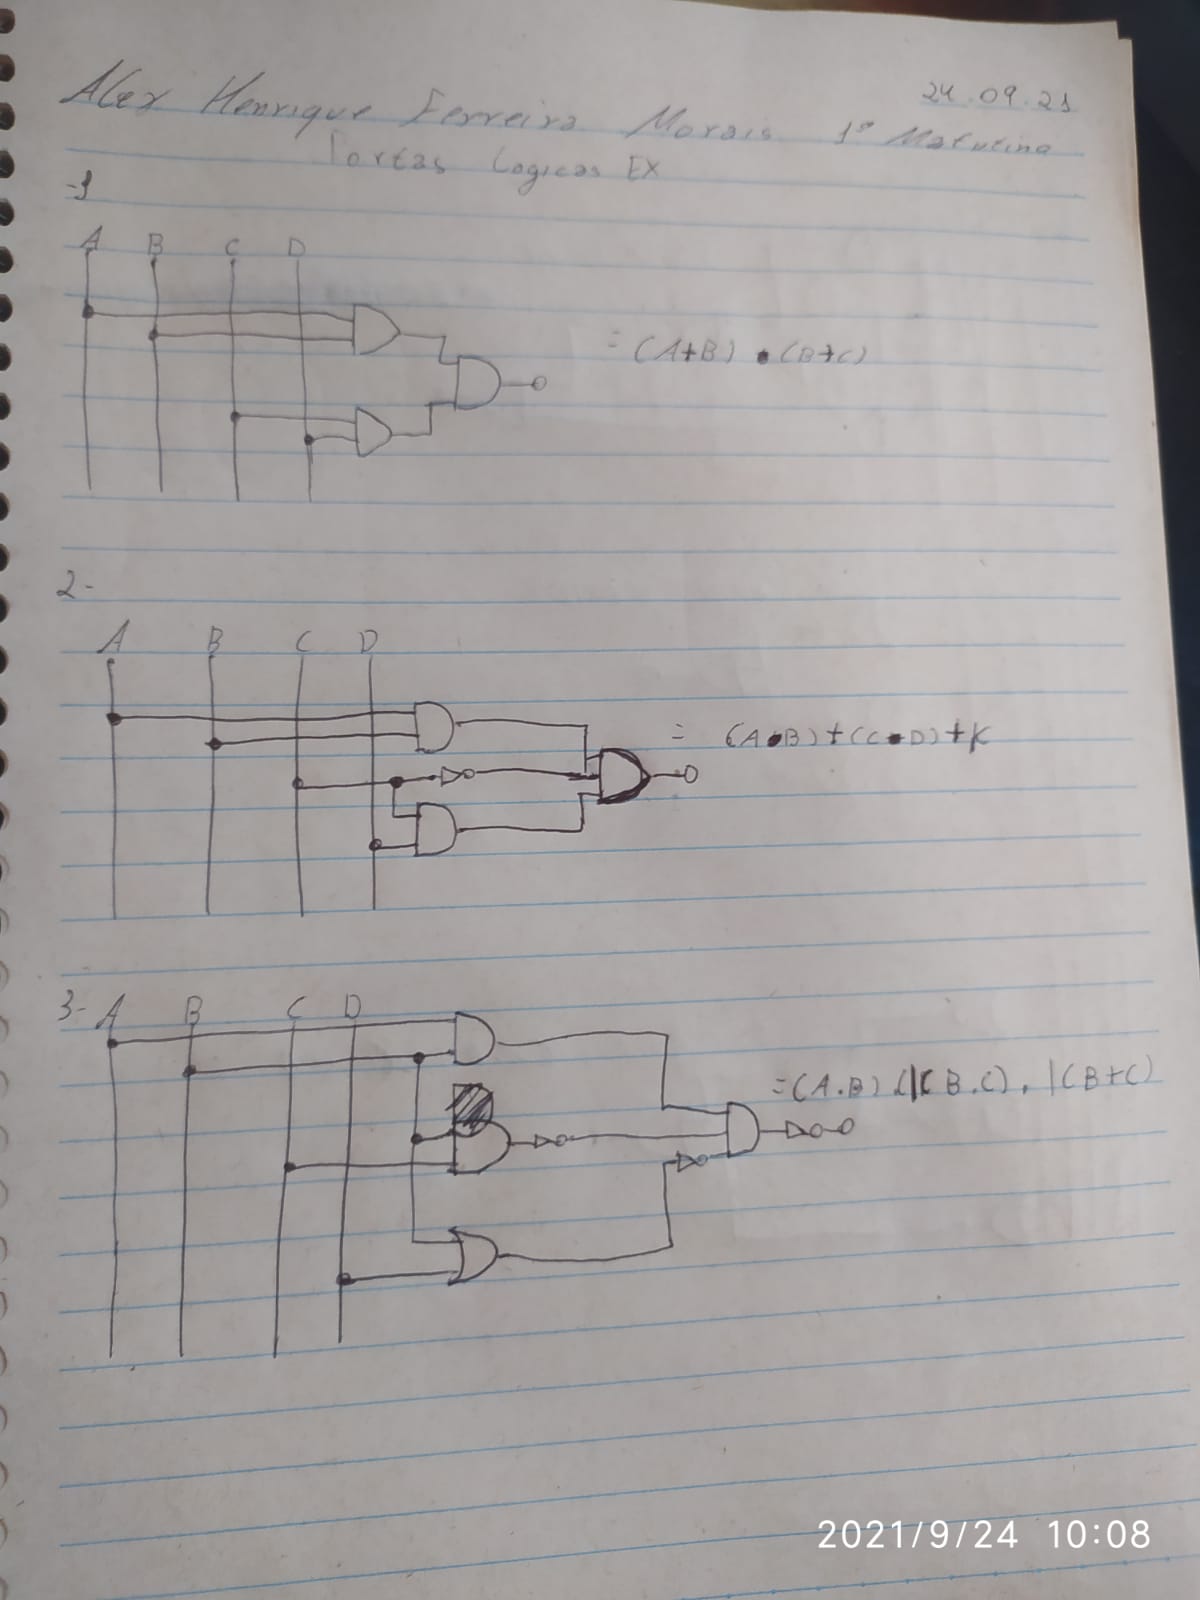 24.09.21
Alex Henrique Ferreira Morais 1º Matutino
Portas Logicas EX
-1
A B C D
= (A+B) • (B+C)
2-
A B C D
= (A•B)+(C•D)+K
3- A B C D
=(A.B) (|( B.C). |(B+C)
2021/9/24 10:08